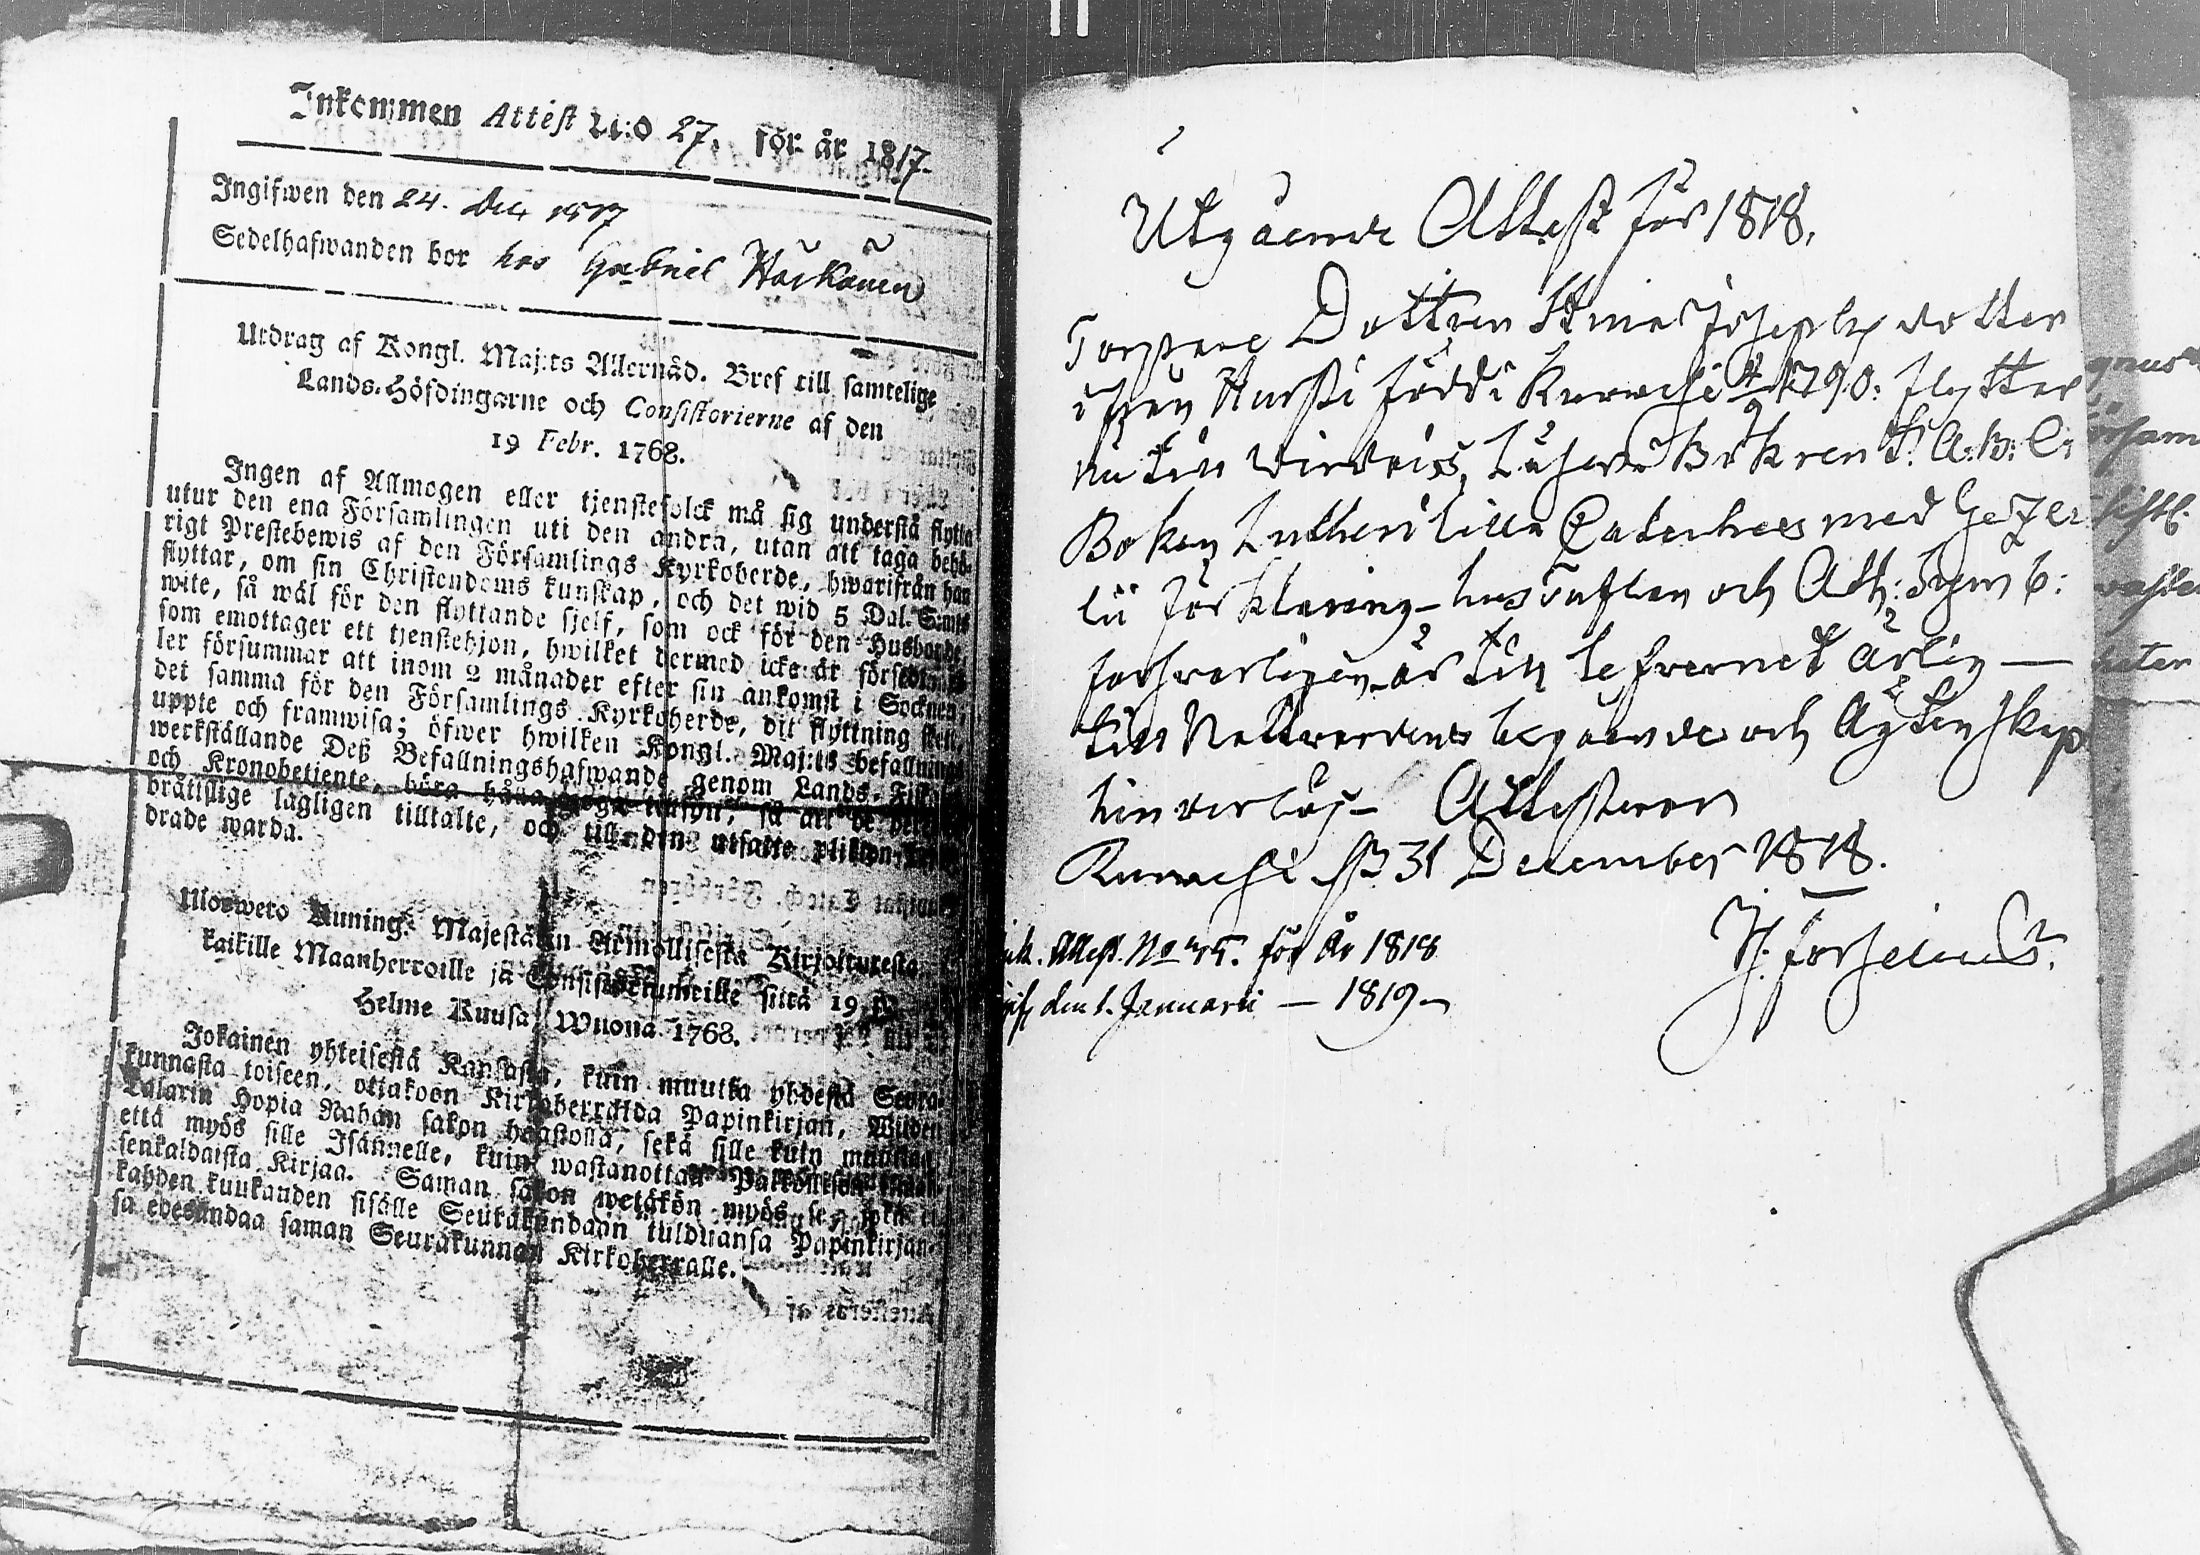 Inkommen Attest N:o 27. för år 1817.
Ingifwen den 24. Dec 1817
Sedelhafwanden bor hos Gabriel Härkönen
Utdrag af Kongl. Maj:ts Allernåd. Bref till samtelige
Lands-Höfdingarne och Consistorierne af den
19 Febr. 1768.
Ingen af Allmogen eller tjenstefolck må sig understå flytta
utur den ena Församlingen uti den andra, utan att taga behö-
rigt Prestebewis af den Församlings Kyrkoherde, hwarifrån han
flyttar, om sin Christendoms kunskap, och det wid 5 Dal. S:mts
wite, så wäl för den flyttande sjelf, som ock för den Husbonde,
som emottager ett tjenstehjon, hwilket dermed icke är försedt
ler försummar att inom 2 månader efter sin ankomst i Socknen,
det samma för den Församlings Kyrkoherde, dit flyttning skett,
uppte och framwisa; öfwer hwilken Kongl. Maj:ts befallnings
werkställande Deß Befallningshafwande genom Lands-Fisk
och Kronobetjente, böra hålla noga tillsyn, så att de
brätslige lagligen tilltalte, och till den utsatte plikten
drade warda.
Ulosweto Kuning: Majestätin Armollisesta Kirjoituresta
kaikille Maanherroille ja Consistoriumeille siitä 19 p.
Helme Kuusa, Wuona 1768.
Jokainen yhteisestä Kansasta, kuin muutta yhdestä Seura-
kunnasta toiseen, ottakoon Kirkoherralda Papinkirjan, Wiiden
Talarin Hopia Rahan sakon haastolla, sekä sille kuin muuttaa
että myös sille Isännelle, kuin wastanottaa Palkollisen
senkaldaista Kirjaa. Saman sakon wetäkön myös se, joka ei
kahden kuukauden sisälle Seurakundaan tulduansa Papinkirjan-
sa edesandaa saman Seurakunnan Kirkoherralle.
Utgående Attest för 1818.
Torpare Dottren Stina Josephs dotter
ifrån Hurski född i 1790: flyttar
nu till Läser Boken A:B:C:
Boken Lutheri lilla Cateches med Gezel
lii förklaring hustaflan och Ath: Symb:
försvarligen är till lefvernet ärlig —
till Nattvardens begående och Ägtenskap
hinderlös Attesterar
d 31 December 1818.
Ink. Attest. No för År 1818
den 1. Januarii — 1819